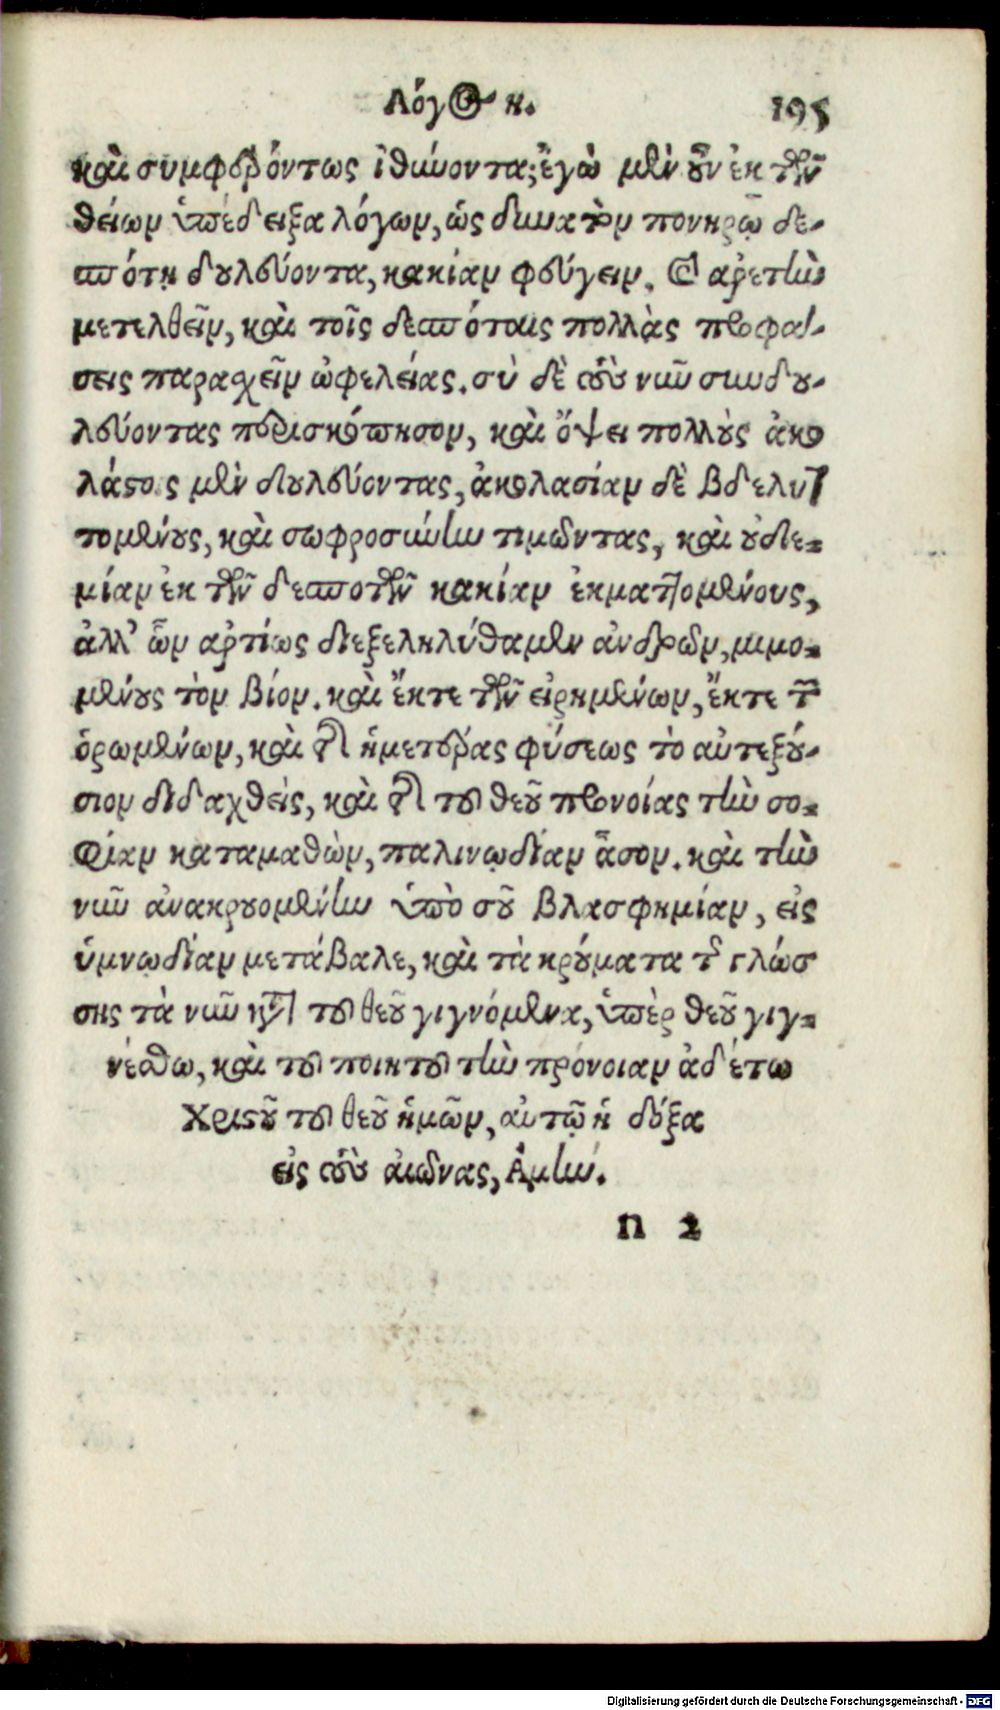 Λόγος η. 195
καὶ συμφερόντως ἰθύνοντα; ἐγὼ μὲν οὖν ἐκ τῶν
θείων ὑπέδειξα λόγων, ὡς δυνατὸν πονηρῷ δε-
σπότῃ δουλεύοντα, κακίαν φεύγειν, καὶ ἀρετὴν
μετελθεῖν, καὶ τοῖς δεσπόταις πολλὰς προφά-
σεις παρασχεῖν ὠφελείας. σὺ δὲ τοὺς νῦν συνδου-
λεύοντας περισκόπησον, καὶ ὄψει πολλοὺς ἀκο
λάστοις μὲν δουλεύοντας, ἀκολασίαν δὲ βδελυτ
τομένους, καὶ σωφροσύνην τιμῶντας, καὶ οὐδε-
μίαν ἐκ τῶν δεσποτῶν κακίαν ἐκματτομένους,
ἀλλ' ὧν ἀρτίως διεξεληλύθαμεν ἀνδρῶν, μιμο-
μένους τὸν βίον. καὶ ἔκτε τῶν εἰρημένων, ἔκτε τῶν
ὁρωμένων, καὶ περὶ ἡμετέρας φύσεως τὸ αὐτεξού-
σιον διδαχθεὶς, καὶ περὶ τοῦ θεοῦ προνοίας τὴν σο-
φίαν καταμαθὼν, παλινῳδίαν ᾆσον. καὶ τὴν
νῦν ἀνακρουομένην ὑπὸ σοῦ βλασφημίαν, εἰς
ὑμνῳδίαν μετάβαλε, καὶ τὰ κρούματα τῆς γλώσ
σης τὰ νῦν κατὰ τοῦ θεοῦ γιγνόμενα, ὑπὲρ θεοῦ γιγ-
νέσθω, καὶ τοῦ ποιητοῦ τὴν πρόνοιαν ᾀδέτω
Χριστοῦ τοῦ θεοῦ ἡμῶν, αὐτῷ ἡ δόξα
εἰς τοὺς αἰῶνας, Ἀμήν.
n 2
Digitalisierung gefördert durch die Deutsche Forschungsgemeinschaft - DFG